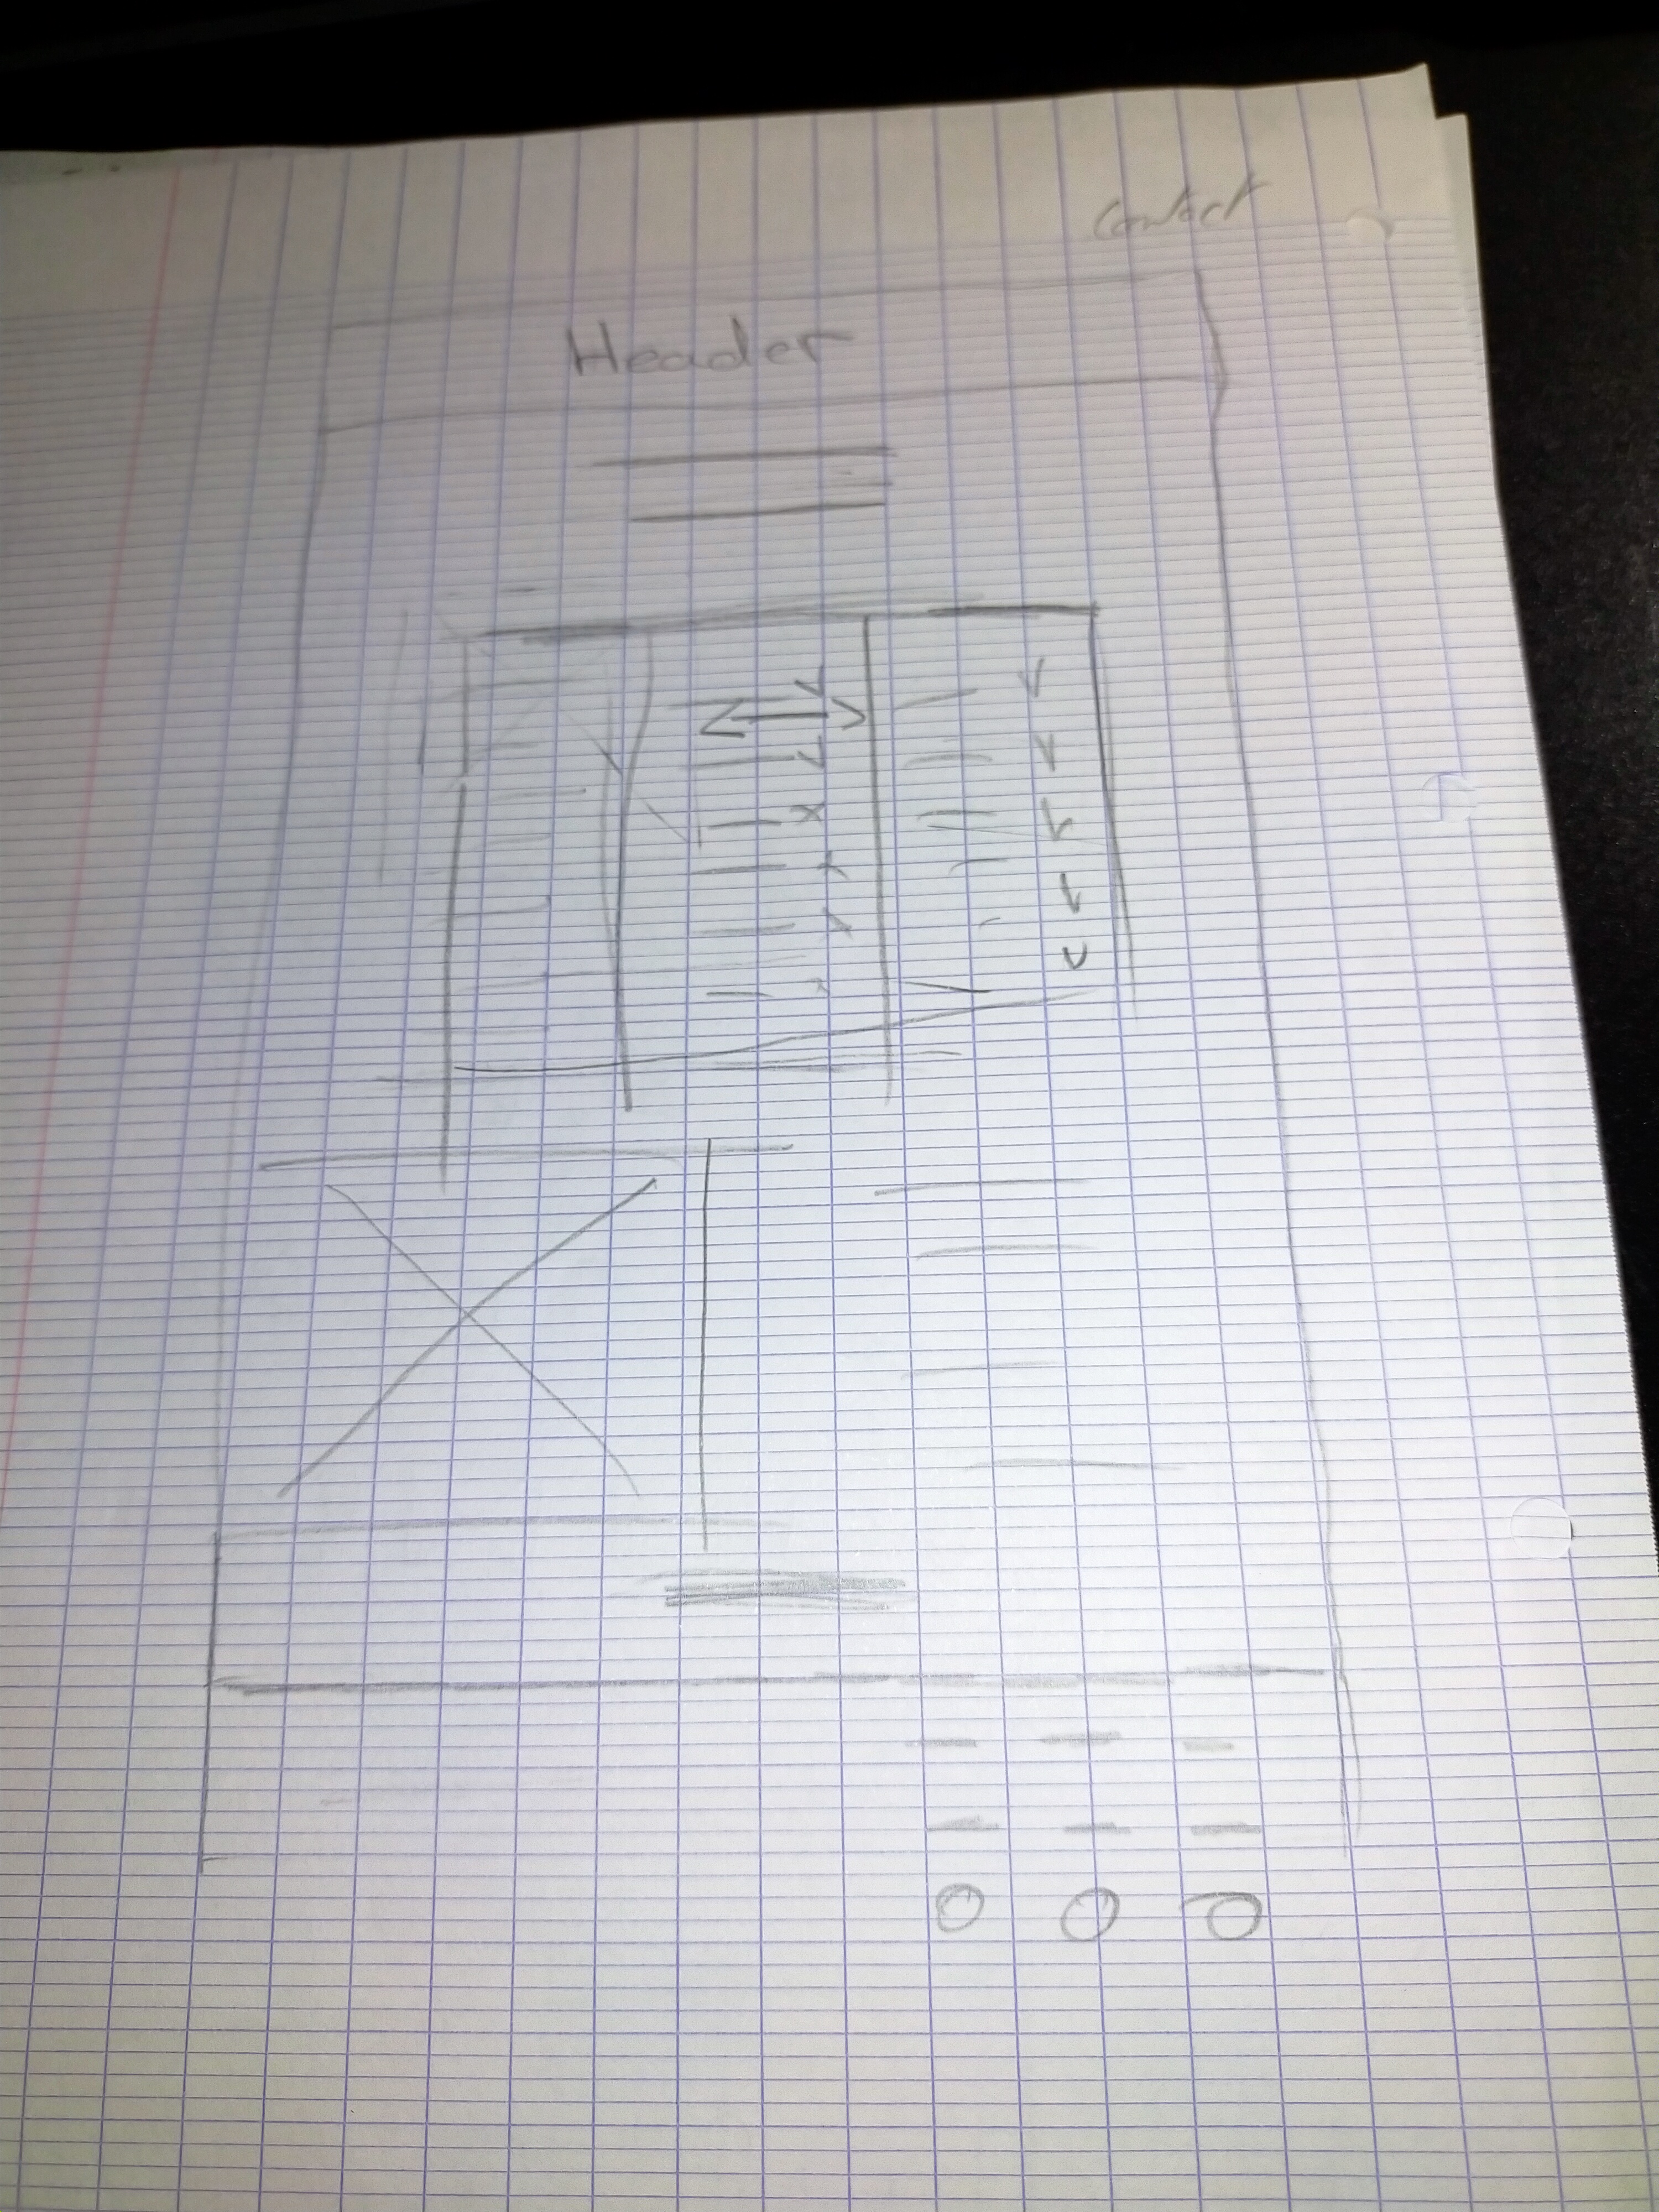 Contact
Header